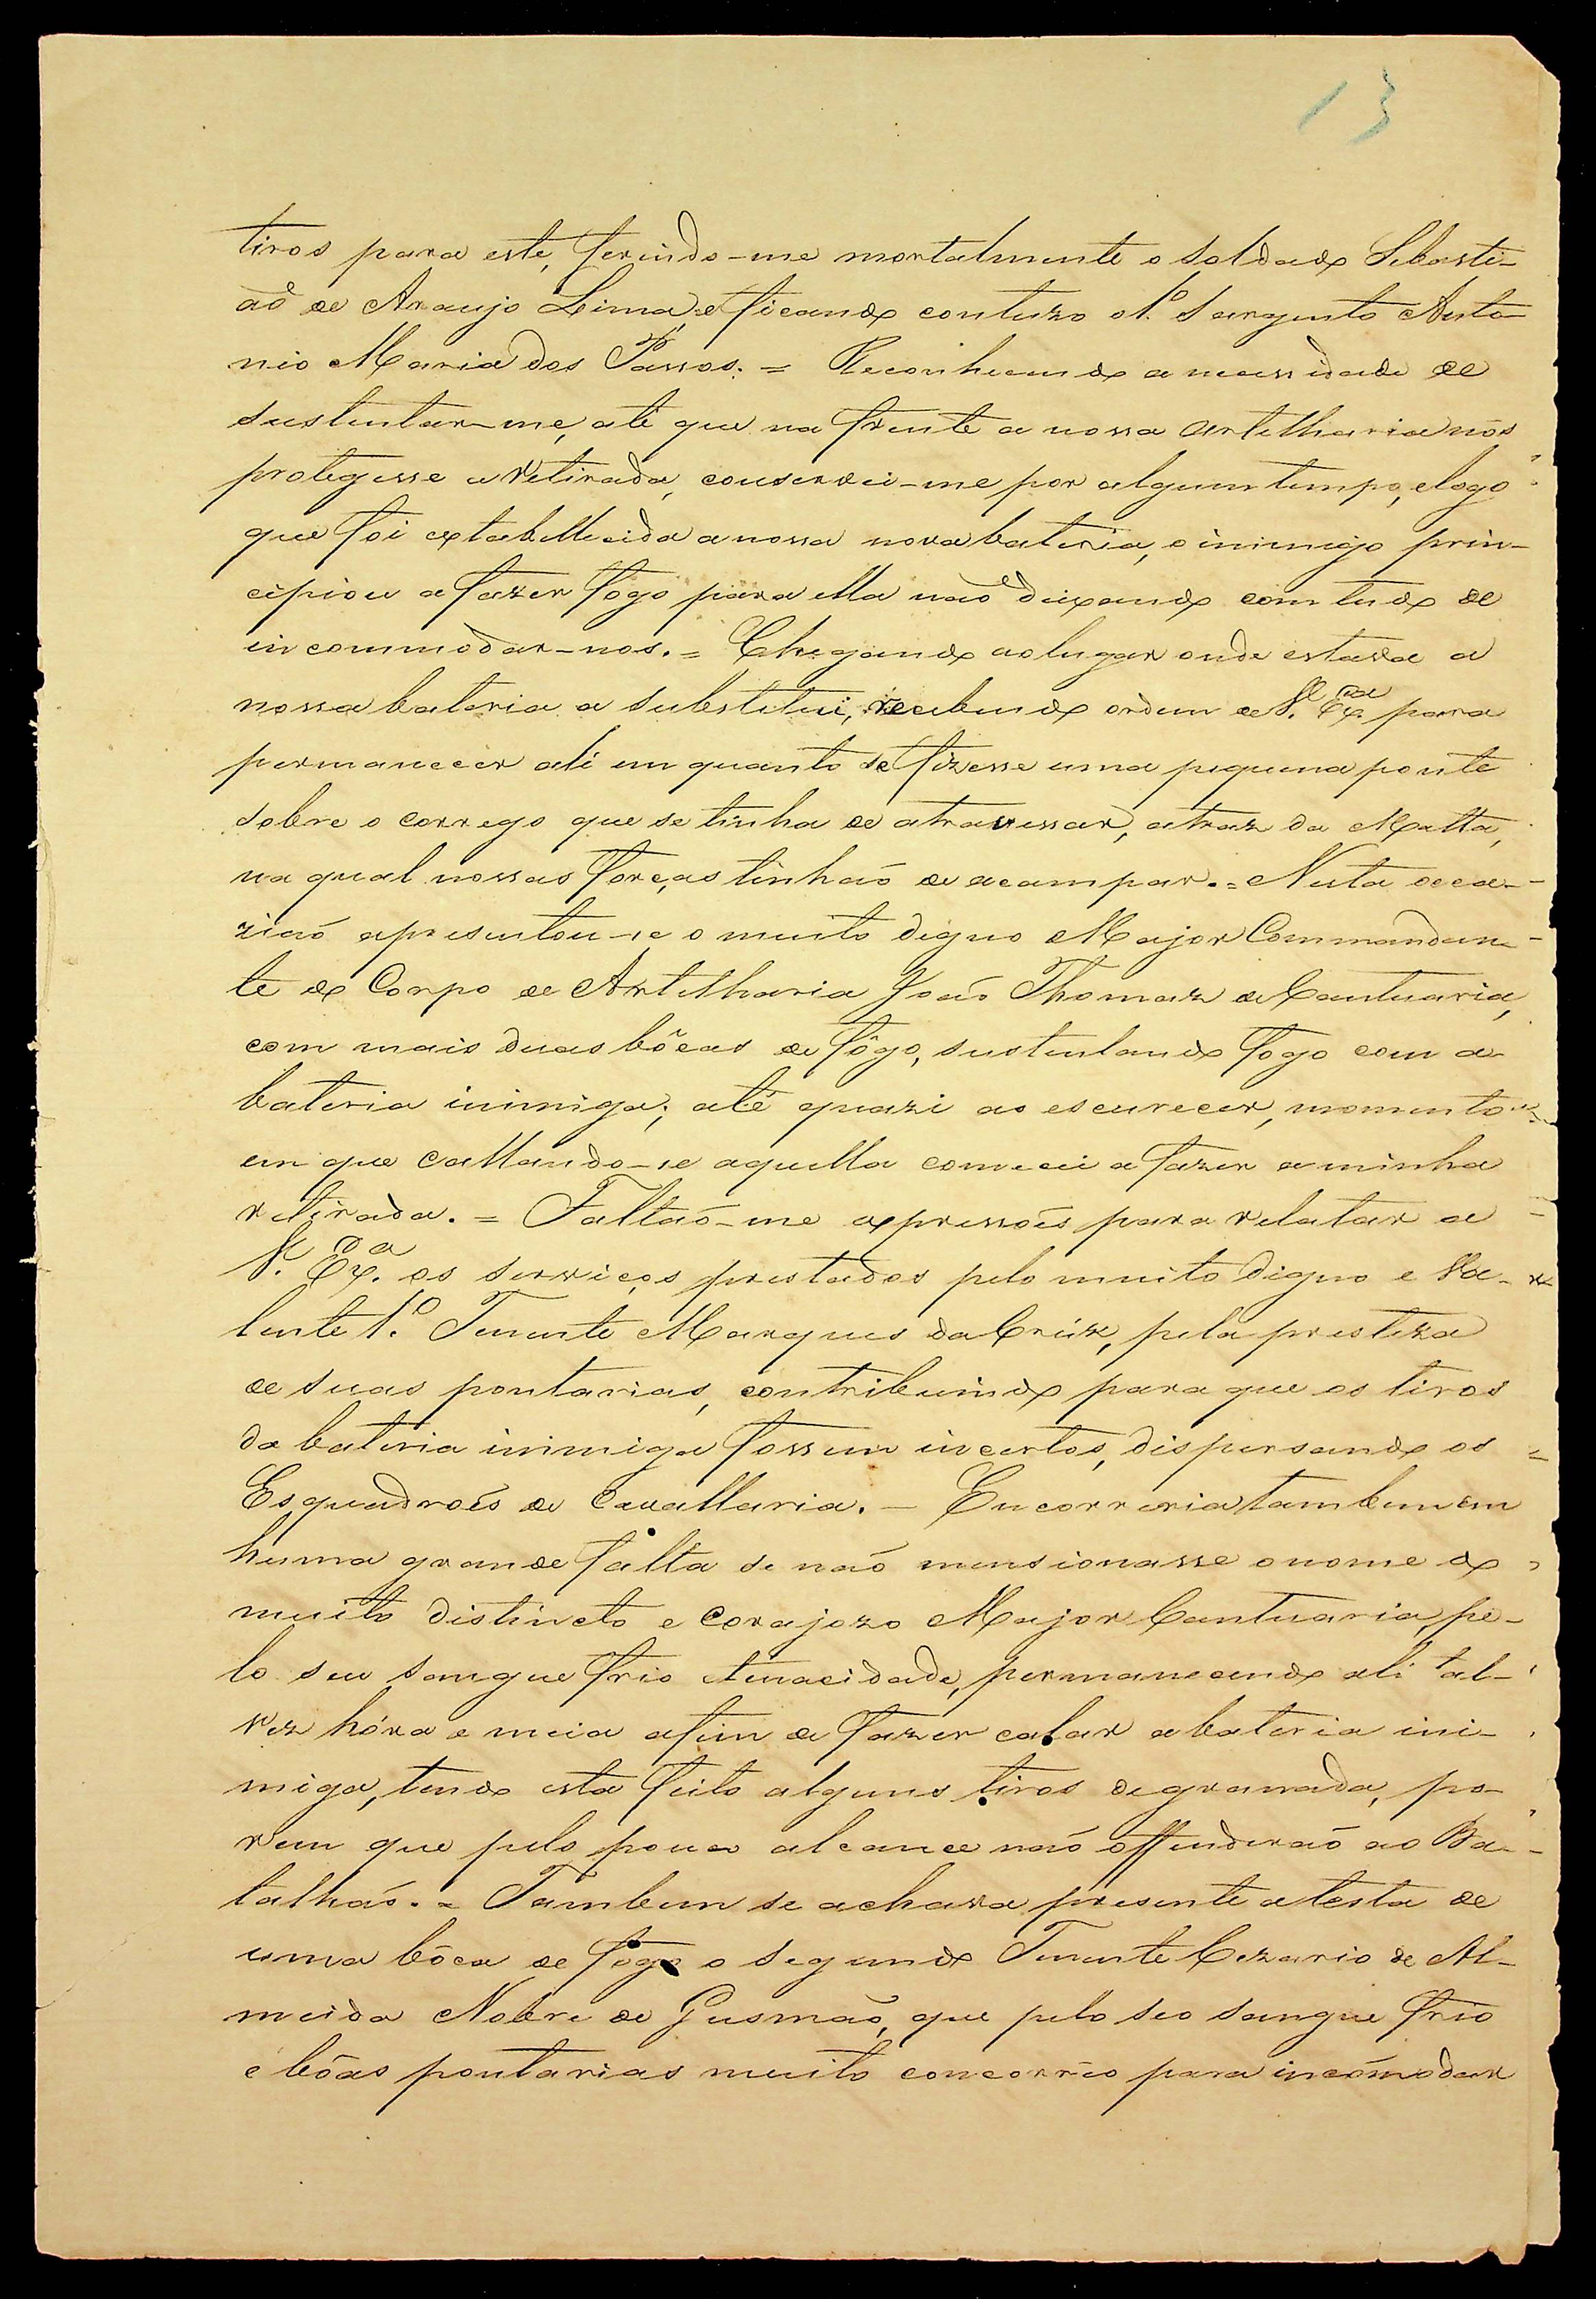 13
tiros para este, ferindo-me mortalmente o soldado Sebasti-
aõ de Araujo Lima, e ficando contuzo o 1º Sargento Anto-
nio Maria dos Passos. = Reconhecendo a necessidade de
sustentar-me, até que na frente a nossa Artelharia nos
protegesse a retirada, conservei-me por algum tempo, e logo
que foi extabellecida a nossa nova bateria, o inimigo prin-
cipiou a fazer fogo para ella naõ deixando comtudo de
incommodar-nos. = Chegando ao lugar onde estava a
nossa bateria a substitui, recebendo ordem de V. Exª para
permanecer ali em quanto se fizesse uma pequena ponte
sobre o corrego que se tinha de atravessar, atraz da Matta,
na qual nossas forças tinhaõ de acampar. = Nesta occa-
ziaõ apresentou-se o muito digno Major Commandan-
te do Corpo de Artelharia Joaõ Thomaz de Cantuaria,
com mais duas bôcas de fôgo, sustentando fogo com a
bateria inimiga; até quazi ao escurecer, momento
em que callando-se aquella comecei a fazer a minha
retirada. = Faltaõ-me expressoẽs para relatar a
V. Exª. os serviços prestados pelo muito digno e va-
lente 1º. Tenente Marques da Crúz, pela presteza
de suas pontarias, contribuindo para que os tiros
da bateria inimiga fossem incertos, dispersando os
Esquadroẽs de Cavallaria. — Encorreria tambem em
huma grande falta se naõ mensionasse o nome do
muito distincto e corajozo Major Cantuaria, pe-
lo seu sangue frio e tenacidade, permanecendo ali tal-
vez hóra e meia afim de fazer calar a bateria ini-
miga, tendo esta feito alguns tiros de granada, po-
rem que pelo pouco alcance naõ offenderaõ ao Ba-
talhaõ. = Tambem se achava presente a testa de
uma bôca de fogo o segundo Tenente Cezario de Al-
meida Nobre de Gusmaõ, que pelo seo sangue frio
e bôas pontarias muito concorrêo para incómodar